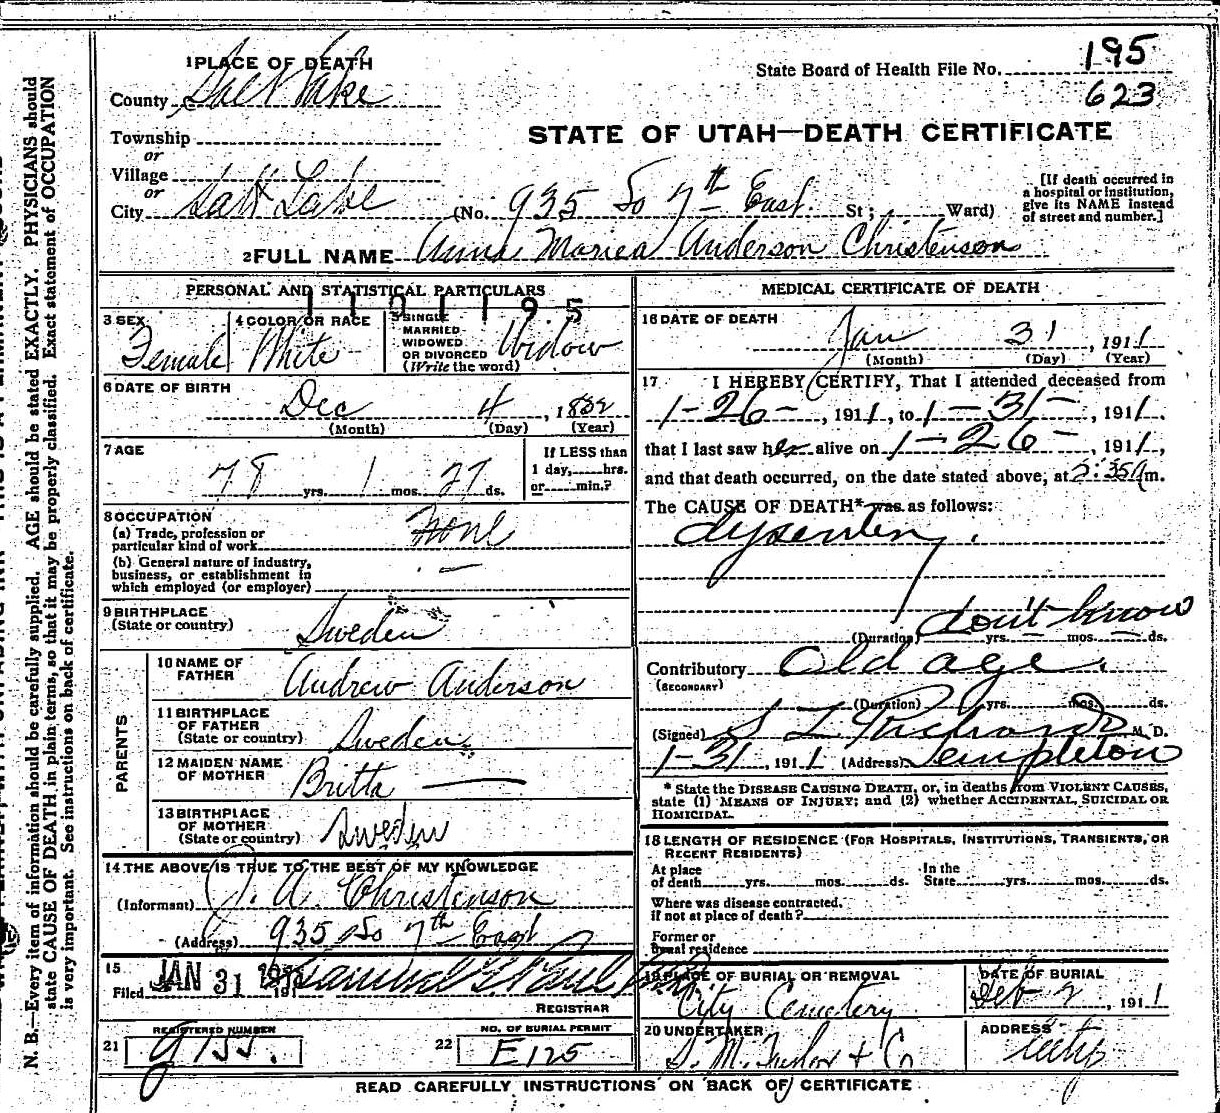 N. B.—Every item of information should be carefully supplied. AGE should be stated EXACTLY. PHYSICIANS should
state CAUSE OF DEATH in plain terms, so that it may be properly classified. Exact statement of OCCUPATION
is very important. See instructions on back of certificate.
1 PLACE OF DEATH
State Board of Health File No. 195
623
County Salt Lake
Township
or
Village
or
City Salt Lake
STATE OF UTAH—DEATH CERTIFICATE
(No. 935 So 7th East St; Ward)
[If death occurred in
a hospital or institution,
give its NAME instead
of street and number.]
2 FULL NAME Anna Mariea Anderson Christenson
PERSONAL AND STATISTICAL PARTICULARS
1101195
3 SEX Female
4 COLOR OR RACE White
5 SINGLE
MARRIED
WIDOWED
OR DIVORCED
(Write the word) Widow
6 DATE OF BIRTH
Dec 4, 1832
(Month) (Day) (Year)
7 AGE
78 yrs. 1 mos. 27 ds.
If LESS than
1 day, hrs.
or min.?
8 OCCUPATION
(a) Trade, profession or
particular kind of work None
(b) General nature of industry,
business, or establishment in
which employed (or employer) —
9 BIRTHPLACE
(State or country) Sweden
PARENTS
10 NAME OF
FATHER Andrew Anderson
11 BIRTHPLACE
OF FATHER
(State or country) Sweden
12 MAIDEN NAME
OF MOTHER Britta —
13 BIRTHPLACE
OF MOTHER
(State or country) Sweden
14 THE ABOVE IS TRUE TO THE BEST OF MY KNOWLEDGE
(Informant) J. A. Christenson
(Address) 935 So 7th East
15
Filed JAN 31 1911 Samuel G. Paul
REGISTRAR
REGISTERED NUMBER
21 G 155.
NO. OF BURIAL PERMIT
22 E125
MEDICAL CERTIFICATE OF DEATH
16 DATE OF DEATH
Jan 31, 1911
(Month) (Day) (Year)
17 I HEREBY CERTIFY, That I attended deceased from
1-26-, 1911, to 1-31-, 1911,
that I last saw her alive on 1-26-, 1911,
and that death occurred, on the date stated above, at 5:35 A m.
The CAUSE OF DEATH* was as follows:
dysentery.
don't know
(Duration) yrs. — mos. — ds.
Contributory Old age.
(SECONDARY)
(Duration) yrs. mos. ds.
(Signed) S L Richards M. D.
1-31, 1911 (Address) Templeton
* State the DISEASE CAUSING DEATH, or, in deaths from VIOLENT CAUSES,
state (1) MEANS OF INJURY; and (2) whether ACCIDENTAL, SUICIDAL OR
HOMICIDAL.
18 LENGTH OF RESIDENCE (FOR HOSPITALS, INSTITUTIONS, TRANSIENTS, OR
RECENT RESIDENTS)
At place
of death yrs. mos. ds. In the
State yrs. mos. ds.
Where was disease contracted,
if not at place of death?
Former or
usual residence
19 PLACE OF BURIAL OR REMOVAL
City Cemetery
DATE OF BURIAL
Feb 2, 1911
20 UNDERTAKER
S. M. Taylor & Co
ADDRESS
City
READ CAREFULLY INSTRUCTIONS ON BACK OF CERTIFICATE